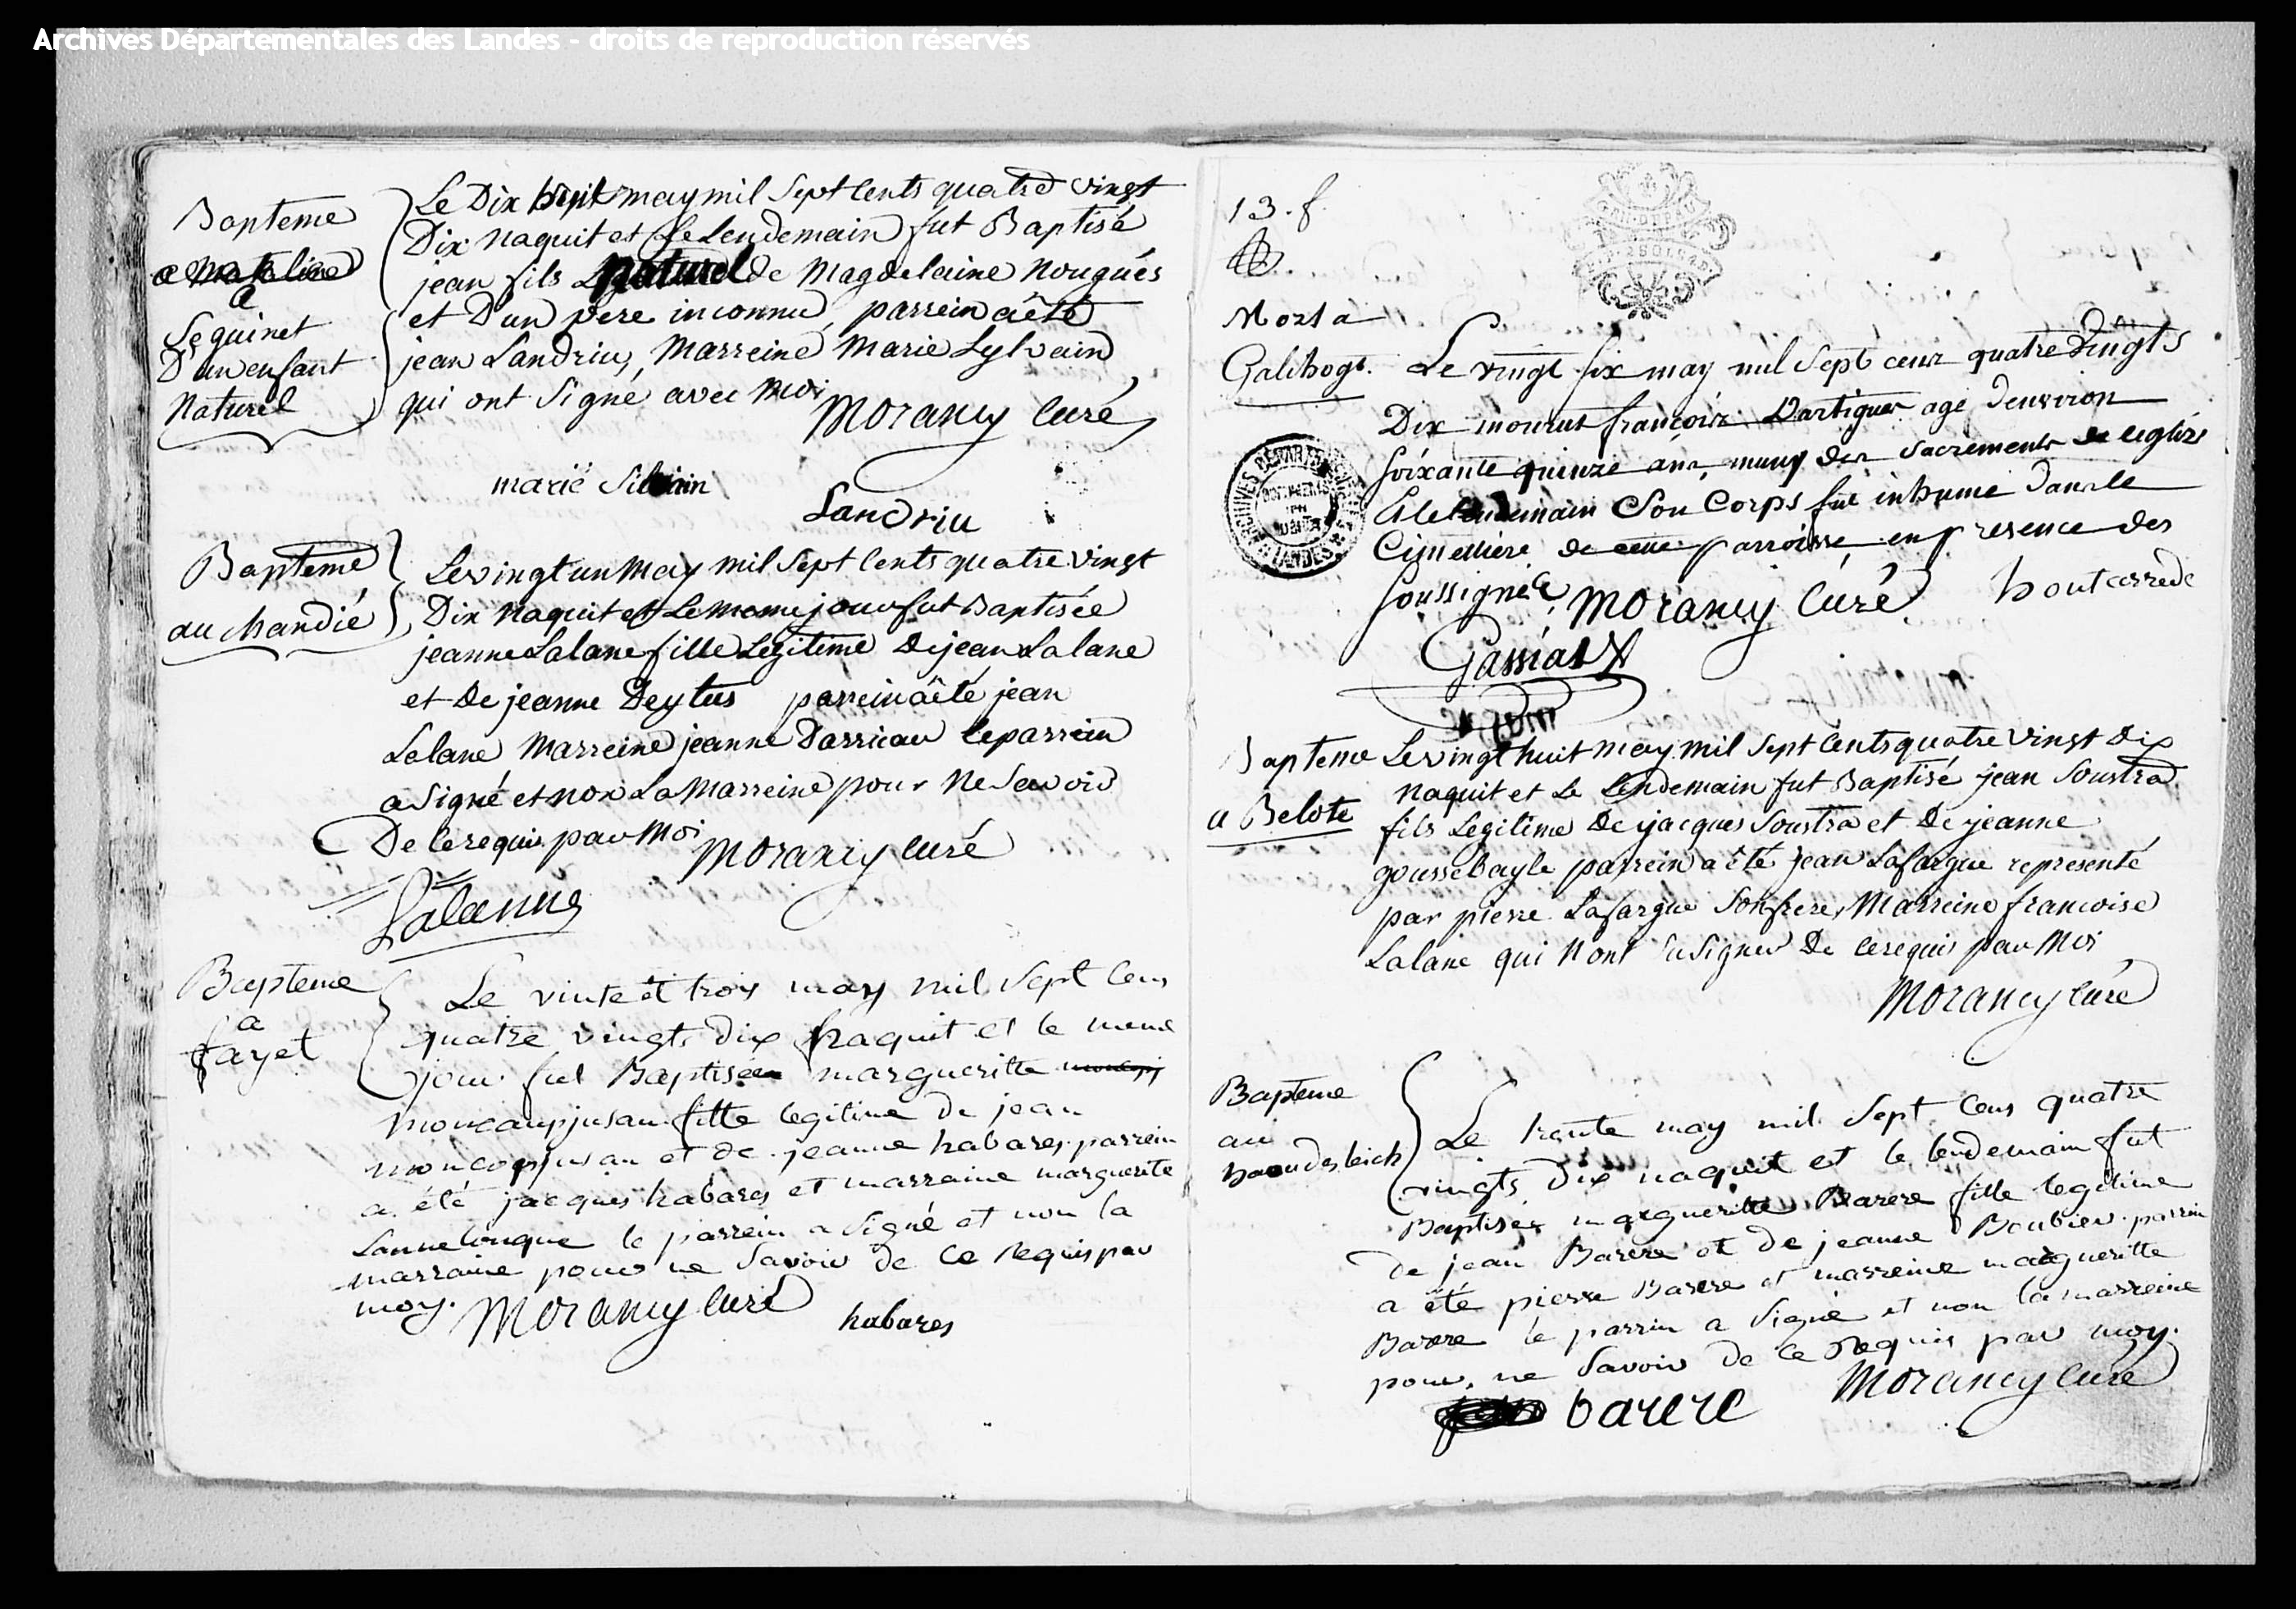 Archives Départementales des Landes - droits de reproduction réservés
Bapteme
a
Seguinet
D'un enfant
Naturel
Le Dix huit may mil Sept Cents quatre vingt
Dix Naquit et Le Lendemain fut Baptisé
jean fils naturel de Magdelaine Nougués
et D'un pere inconnu, parrein a êté
jean Landriu, Marreine Marie Sylvain
qui ont Signé avec Moi
Morancy Curé
marië Silvain
Landriu
Bapteme
au Mandié
Le vingt un May mil Sept Cents quatre vingt
Dix Naquit et Le meme jour fut Baptisée
jeanne Lalane fille Legitime De jean Lalane
et De jeanne Deytus parrein a êté jean
Lalane Marreine jeanne Darricau le parrein
a Signé et non La Marreine pour Ne Scavoir
De Ce requis par Moi Morancy Curé
Lalanne
Bapteme
a
fayet
Le vinte et troy may mil Sept Cens
quatre vingts dix naquit et le meme
jour fut Baptisée margueritte
moncaupjusan fille legitime de jean
moncaupjusan et de jeanne habares parrein
a été jacques habares et marraine marguerite
Lannelongue le parrein a Signé et non la
marraine pour ne Savoir de Ce Requis par
moy. Morancy Curé habares
13. f.
Mort a
Galihogt.
Le vingt six may mil Sept cens quatre vingts
Dix mourut françois Dartigues agé d'environ
soixante quinze ans, muny des Sacrements de l'eglise
et le lendemain Son Corps fut inhumé dans le
Cimettiere de cette parroisse en presence des
soussignés. Morancy Curé hontarrede
Gassiat
Bapteme
a Belote
Le vingt huit may mil Sept Cents quatre vingt dix
naquit et le Lendemain fut Baptisé jean Soustra
fils Legitime De jacques Soustra et De jeanne
goussebayle parrein a êté jean Lafargue representé
par pierre Lafargue Son frere, Marreine francoise
Lalane qui N'ont Su Signer De Ce requis par Moi
Morancy Curé
Bapteme
au
Le trente may mil Sept Cens quatre
vingts Dix naquit et le lendemain fut
Baptisée margueritte Barere fille legitime
de jean Barere et de jeanne Boubieu parrin
a été pierre Barere et marreine margueritte
Barere le parrin a Signé et non la marreine
pour ne Savoir de Ce Requis par moy.
barere Morancy Curé